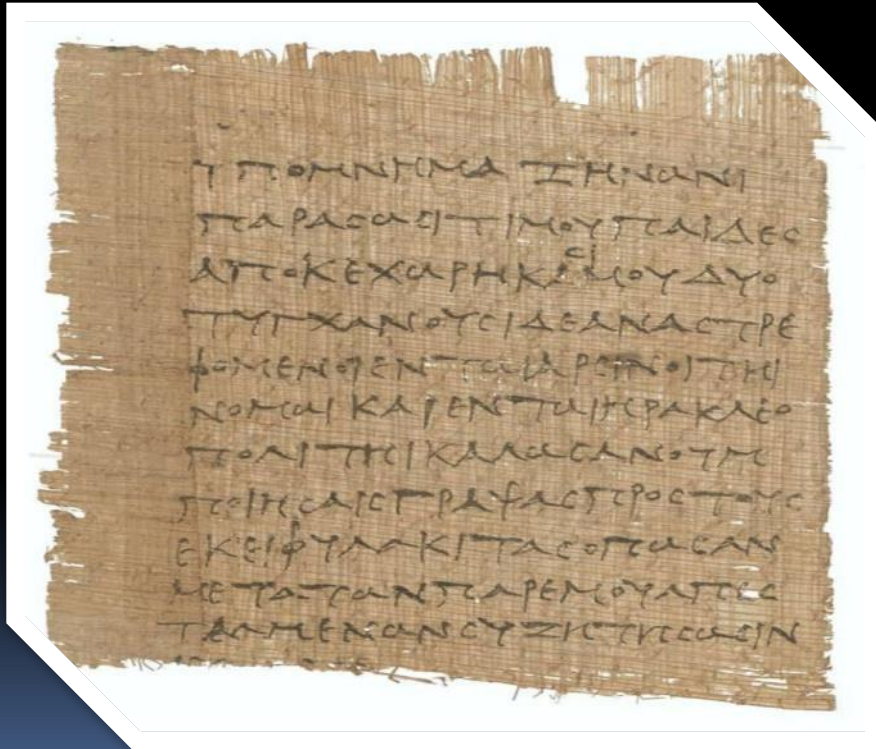 ΥΠΟΜΝΗΜΑ ΖΗΝΩΝΙ
ΠΑΡΑ ΣΩΣΙΤΙΜΟΥ ΠΑΙΔΕΣ
ΑΠΟΚΕΧΩΡΗΚΑΣΙ ΜΟΥ ΔΥΟ
ΤΥΓΧΑΝΟΥΣΙ ΔΕ ΑΝΑΣΤΡΕ
ΦΟΜΕΝΟΙ ΕΝ ΤΩΙ ΑΡΣΙΝΟΙΤΗΙ
ΝΟΜΩΙ ΚΑΙ ΕΝ ΤΩΙ ΗΡΑΚΛΕΟ
ΠΟΛΙΤΗΙ ΚΑΛΩΣ ΑΝ ΟΥΝ
ΠΟΙΗΣΑΙΣ ΓΡΑΨΑΣ ΠΡΟΣ ΤΟΥΣ
ΕΚΕΙ ΦΥΛΑΚΙΤΑΣ ΟΠΩΣ ΑΝ
ΜΕΤΑ ΤΩΝ ΠΑΡ ΕΜΟΥ ΑΠΕΣ
ΤΑΛΜΕΝΩΝ ΣΥΖΗΤΗΣΩΣΙΝ